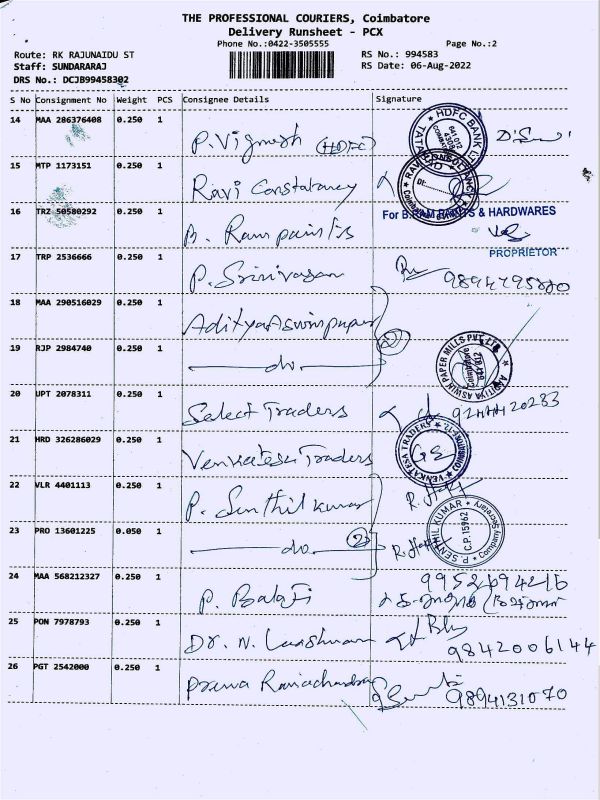 THE PROFESSIONAL COURIERS, Coimbatore
Delivery Runsheet - PCX
Phone No.:0422-3505555 Page No.:2
Route: RK RAJUNAIDU ST RS No.: 994583
Staff: SUNDARARAJ RS Date: 06-Aug-2022
DRS No.: DCJB99458302
S No Consignment No Weight PCS Consignee Details Signature
14 MAA 286376408 0.250 1
P. Vignesh (HDFC)
HDFC BANK LTD
641 012
15 MTP 1173151 0.250 1
Ravi Constatancy
RAVI CONSULTANCY
16 TRZ 50580292 0.250 1
For B.RAM PAINTS & HARDWARES
B. Ram paints
PROPRIETOR
17 TRP 2536666 0.250 1
P. Srinivasan
18 MAA 290516029 0.250 1
Aditya Aswin paper
19 RJP 2984740 0.250 1
do. (2)
ADITYA ASWIN PAPER MILLS PVT LTD
Coimbatore
20 UPT 2078311 0.250 1
Select Traders
21 HRD 326286029 0.250 1
Venkatesa Traders
VENKATESA TRADERS
22 VLR 4401113 0.250 1
P. Senthil kumar
23 PRO 13601225 0.050 1
do. (2)
P. SENTHIL KUMAR
Company Secretary
C.P. 15962
24 MAA 568212327 0.250 1
P. Balaji
25 PON 7978793 0.250 1
Dr. N. Laxshman 9842006144
26 PGT 2542000 0.250 1
Ravichandran 9894131070